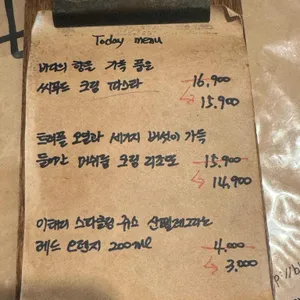 Today menu
바다의 향을 가득 품은
씨푸드 크림 파스타 16,900
15,900
트러플 오일과 세가지 버섯이 가득
들어간 머쉬룸 크림 리조또 15,900
14,900
이태리 스타일 쥬스 산펠레그리노
레드 오렌지 200ml 4,000
3,000